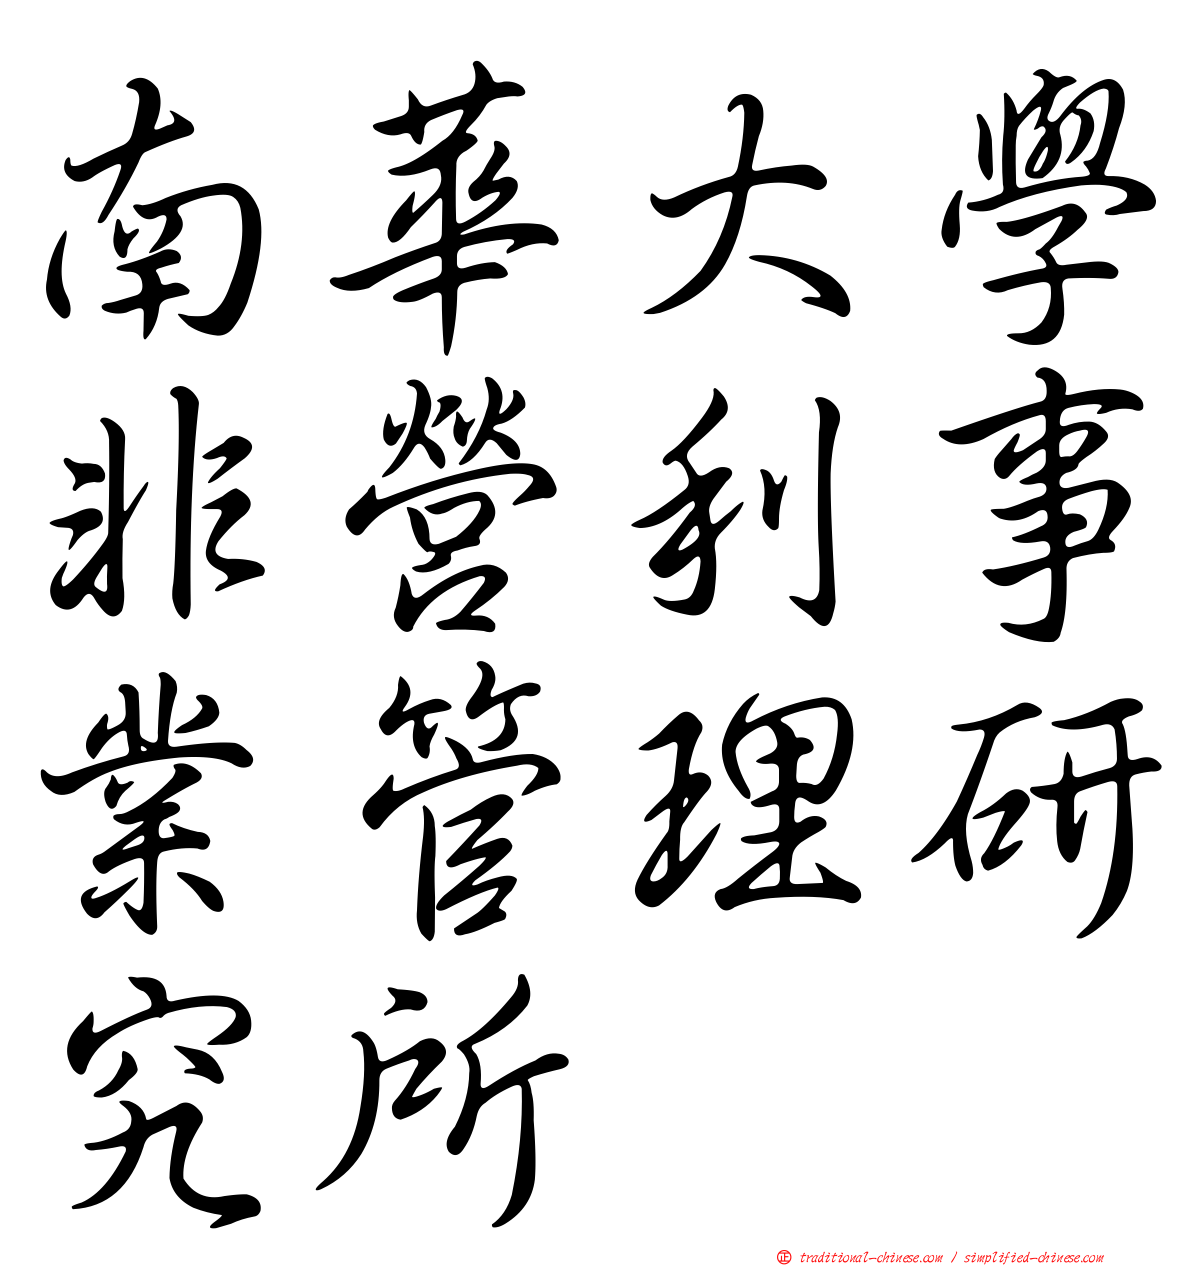 南華大學
非營利事
業管理研
究所
正 traditional-chinese.com / simplified-chinese.com